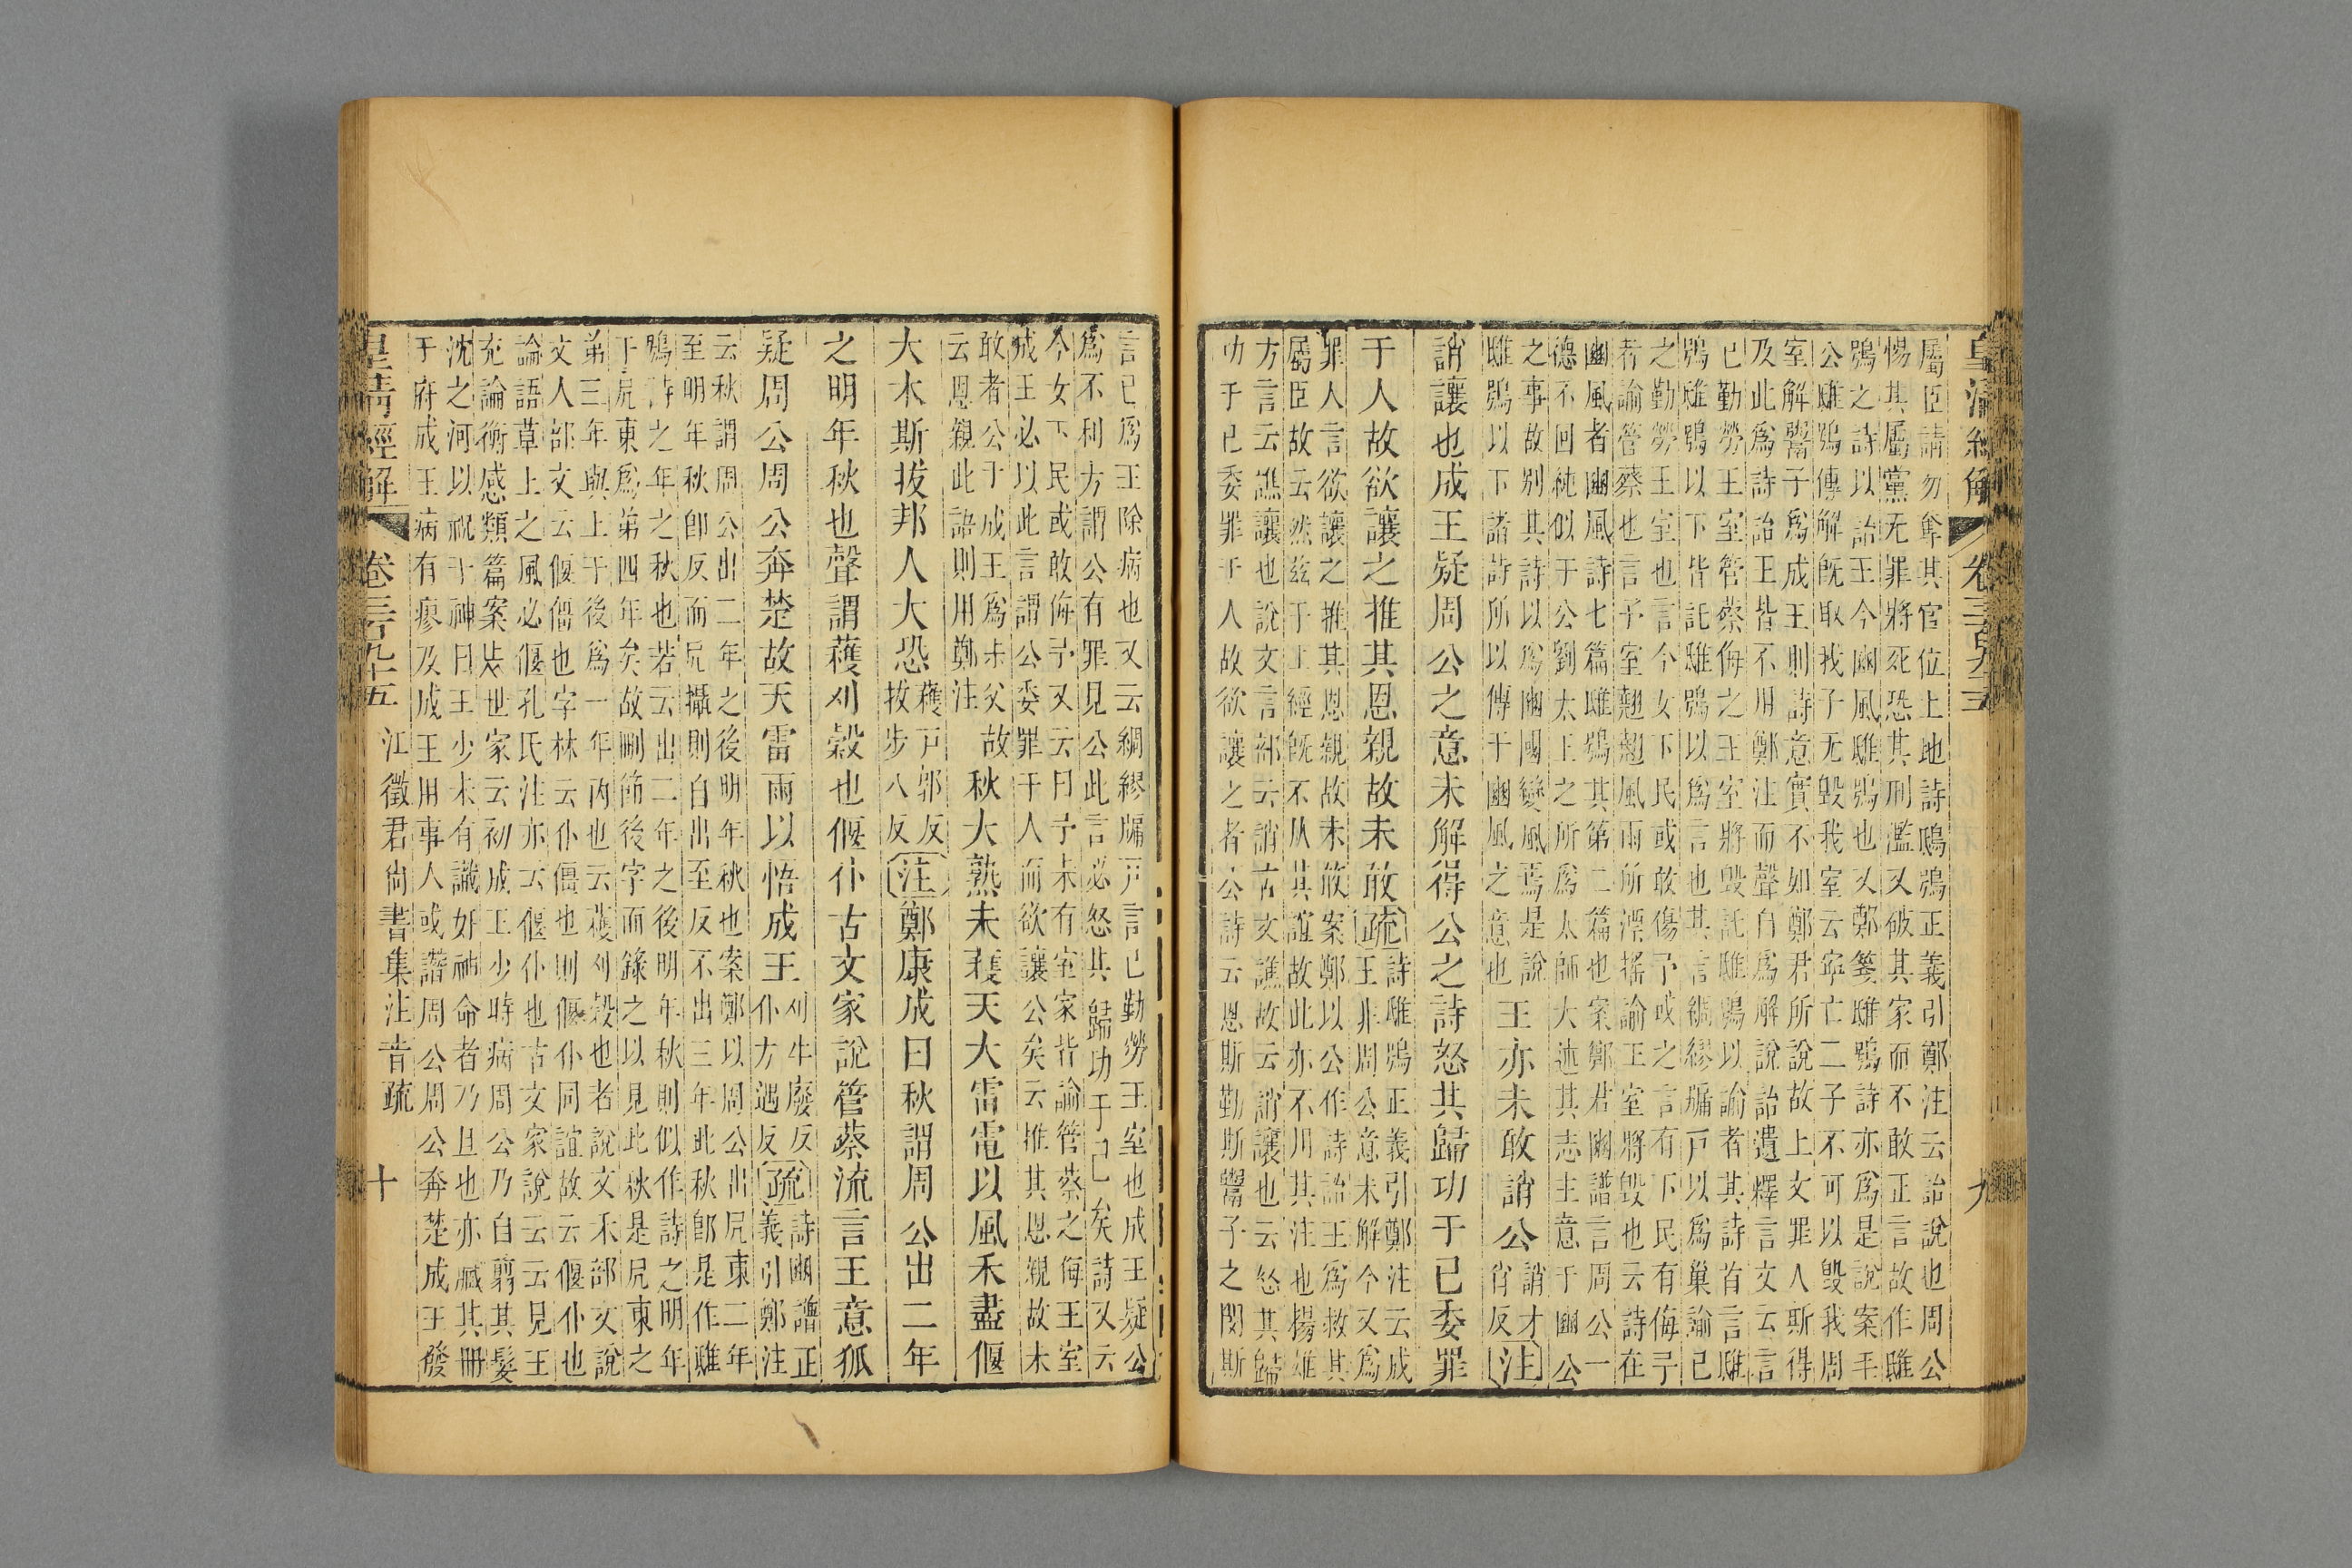 皇清經解
九
屬臣請勿奪其官位土地詩鴟鴞正義引鄭注云詒說也周公
惕其屬黨无罪將死恐其刑濫又破其家而不敢正言故作鴟
鴞之詩以詒王今豳風鴟鴞也又鄭箋鴟鴞詩亦爲是說案毛
公鴟鴞傳解既取我子无毀我室云寧亡二子不可以毀我周
室解鬻子爲成王則詩意實不如鄭君所說故上文罪人斯得
及此爲詩詒王皆不用鄭注而聲自爲解說詒遺釋言文云言
已勤勞王室管蔡侮之王室將毀託鴟鴞以諭者其詩首言鴟
鴞鴟鴞以下皆託鴟鴞以爲言也其言綢繆牖戸以爲巢諭已
之勤勞王室也言今女下民或敢傷予或之言有下民有侮予
者諭管蔡也言予室翹翹風雨所漂搖諭王室將毀也云詩在
豳風者豳風詩七篇鴟鴞其第二篇也案鄭君豳譜言周公一
德不回純似于公劉太王之所爲太師大述其志主意于豳公
之事故別其詩以爲豳國變風焉是說
鴟鴞以下諸詩所以傳于豳風之意也
王亦未敢誚公
誚才
肖反
注
誚讓也成王疑周公之意未解得公之詩怒其歸功于已委罪
于人故欲讓之推其恩親故未敢疏
詩鴟鴞正義引鄭注云成
王非周公意未解今又爲
罪人言欲讓之推其恩親故未敢案鄭以公作詩詒王爲救其
屬臣故云然茲于上經旣不从其誼故此亦不用其注也揚雄
方言云譙讓也說文言部云誚古文譙故云誚讓也云怒其歸
功于已委罪于人故欲讓之者公詩云恩斯勤斯鬻子之閔斯
言已爲王除病也又云綢繆牖戸言已勤勞王室也成王疑公
爲不利方謂公有罪見公此言必怒其歸功于已矣詩又云
今女下民或敢侮予又云曰予未有室家皆諭管蔡之侮王室
成王必以此言謂公委罪于人而欲讓公矣云推其恩親故未
敢者公于成王爲未父故
云恩親此語則用鄭注
秋大熟未穫天大雷電以風禾盡偃
大木斯拔邦人大恐
穫戸郭反
拔步八反
注鄭康成曰秋謂周公出二年
之明年秋也聲謂穫刈穀也偃仆古文家說管蔡流言王意狐
疑周公周公奔楚故天雷雨以悟成王
刈牛廢反
仆方遇反
疏
詩豳譜正
義引鄭注
云秋謂周公出二年之後明年秋也案鄭以周公出凥東二年
至明年秋卽反而凥攝則自出至反不出三年此秋卽是作鴟
鴞詩之年之秋也若云出二年之後明年秋則似作詩之明年
于凥東爲第四年矣故刪節後字而錄之以見此秋是凥東之
弟三年與上于後爲一年內也云穫刈穀也者說文禾部文說
文人部文云偃僵也字林云仆僵也則偃仆同誼故云偃仆也
論語草上之風必偃孔氏注亦云偃仆也古文家說云云見王
充論衡感類篇案史世家云初成王少時病周公乃自翦其髮
沈之河以祝于神曰王少未有識奸神命者乃旦也亦臧其冊
于府成王病有瘳及成王用事人或譖周公周公奔楚成王發
皇清經解
卷三百九十五
江徵君尙書集注音疏
十